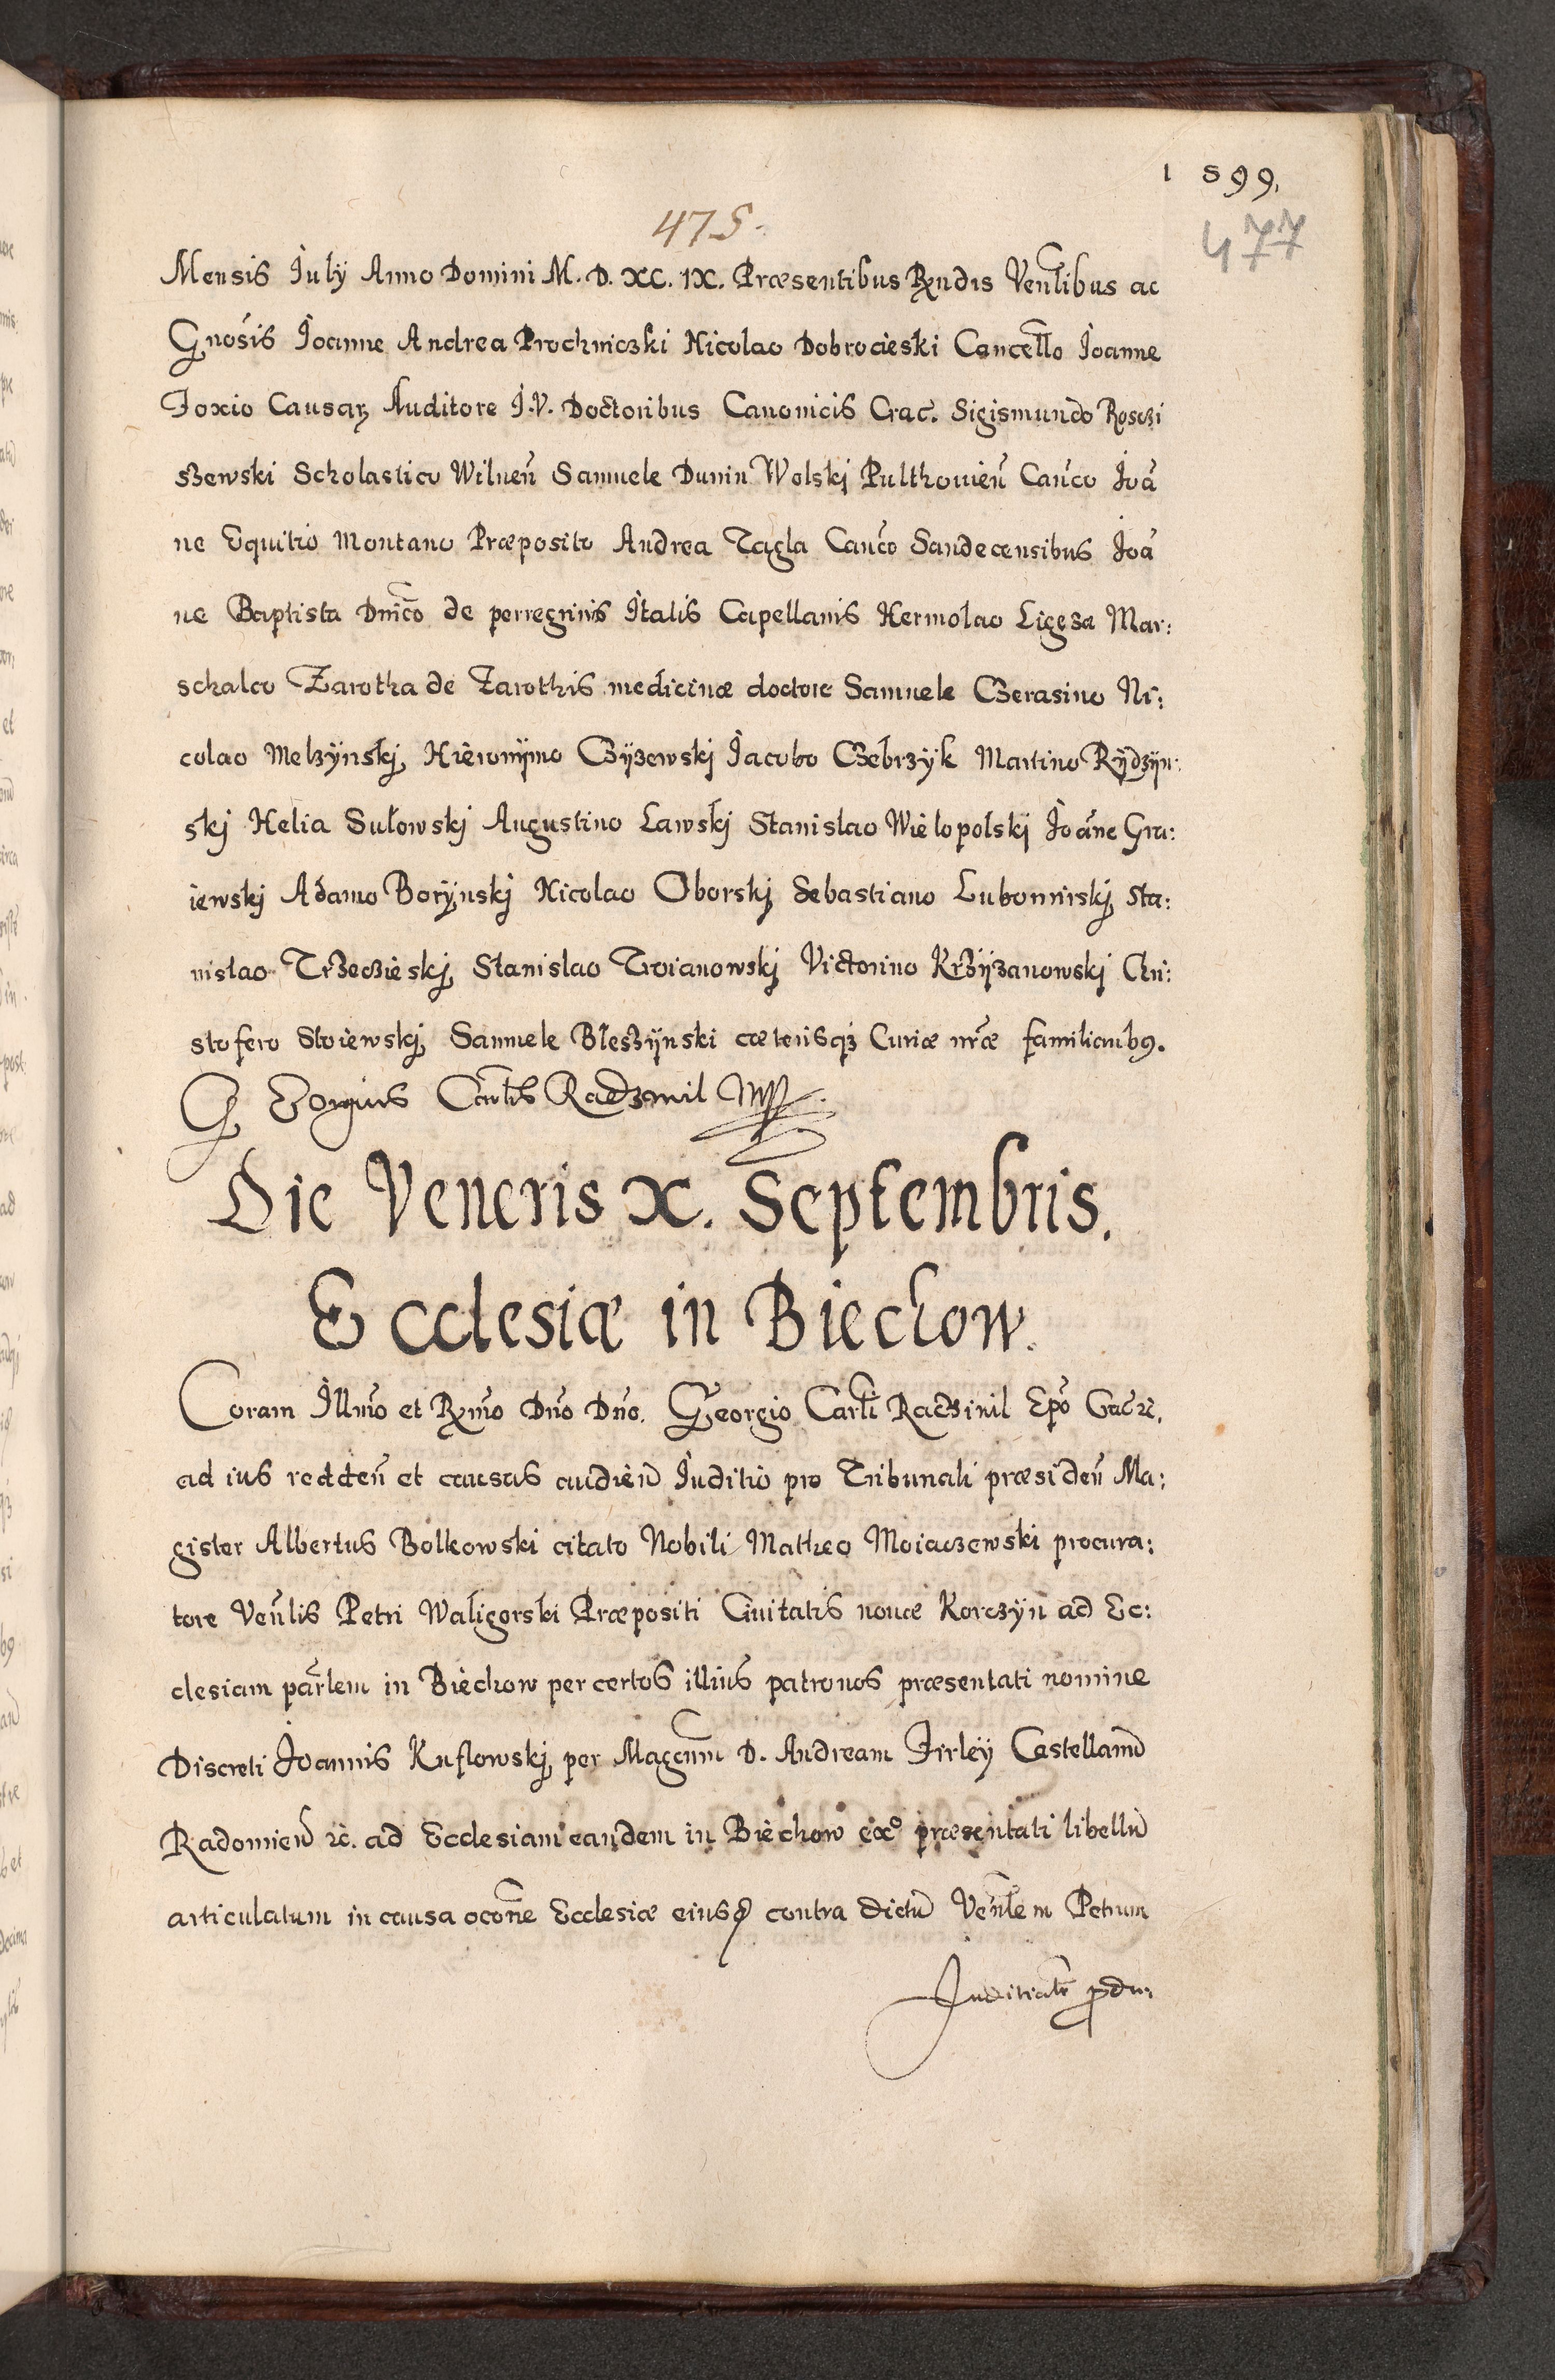 1599.
475.
477
Mensis Iulÿ Anno Domini M. D. XC. IX. Præsentibus Rndis Venlibus ac
Gnosis Ioanne Andrea Prochniczki Nicolao Dobrocieski Cancello Ioanne
Foxio Causarꝝ Auditore I.V. Doctoribus Canonicis Crac. Sigismundo Rosczi
szewski Scholastico Wilneñ Samuele Dunin Wolskj Pulthouieñ Canco Ioã
ne Equitio Montano Præposito Andrea Tagla Canco Sandecensibus Ioã
ne Baptista Dnico de perregrinis Italis Capellanis Hermolao Ligęza Mar:
schalco Zarotha de Zarothis medicinæ doctore Samuele Czerasino Ni:
colao Melzÿnskj, Hieronÿmo Czÿzewskj Iacobo Czebrzÿk Martino Rÿdzÿn:
skj Helia Sułowskj Augustino Lawskj Stanislao Wielopolskj Ioãne Gra:
iewskj Adamo Borÿnskj Nicolao Oborskj Sebastiano Lubomirskj, Sta:
nislao Trzeczieskj, Stanislao Troianowskj Victorino Krzÿzanowskj Chri:
stofero Stoiewskj, Samuele Błeszÿnski cæterisqꝫ Curiæ nræ familiaribꝯ.
GEorgius Carlis Radzwil Mpp
Die Veneris X. Septembris.
Ecclesiæ in Biechow.
Coram Illmo et Rmo Dno Dno. Georgio Carli Radziuil Epo Crac ꝛc.
ad ius reddeñ et causas audieñ Iuditio pro Tribunali præsideñ Ma:
gister Albertus Bolkowski citato Nobili Matheo Moiaczewski procura:
tore Veñlis Petri Waligorski Præpositi Ciuitatis nouæ Korczÿn ad Ec:
clesiam parlem in Biechow per certos illius patronos præsentati nomine
Discreti Ioannis Kuflowskj, per Magcum D. Andream Firleÿ Castellanũ
Radomieñ ꝛc. ad Ecclesiam eandem in Biechow ex° præsentati libellũ
articulatum in causa oconne Ecclesiæ eiusꝺ contra dictũ Veñlem Petrum
Juditialr produ: